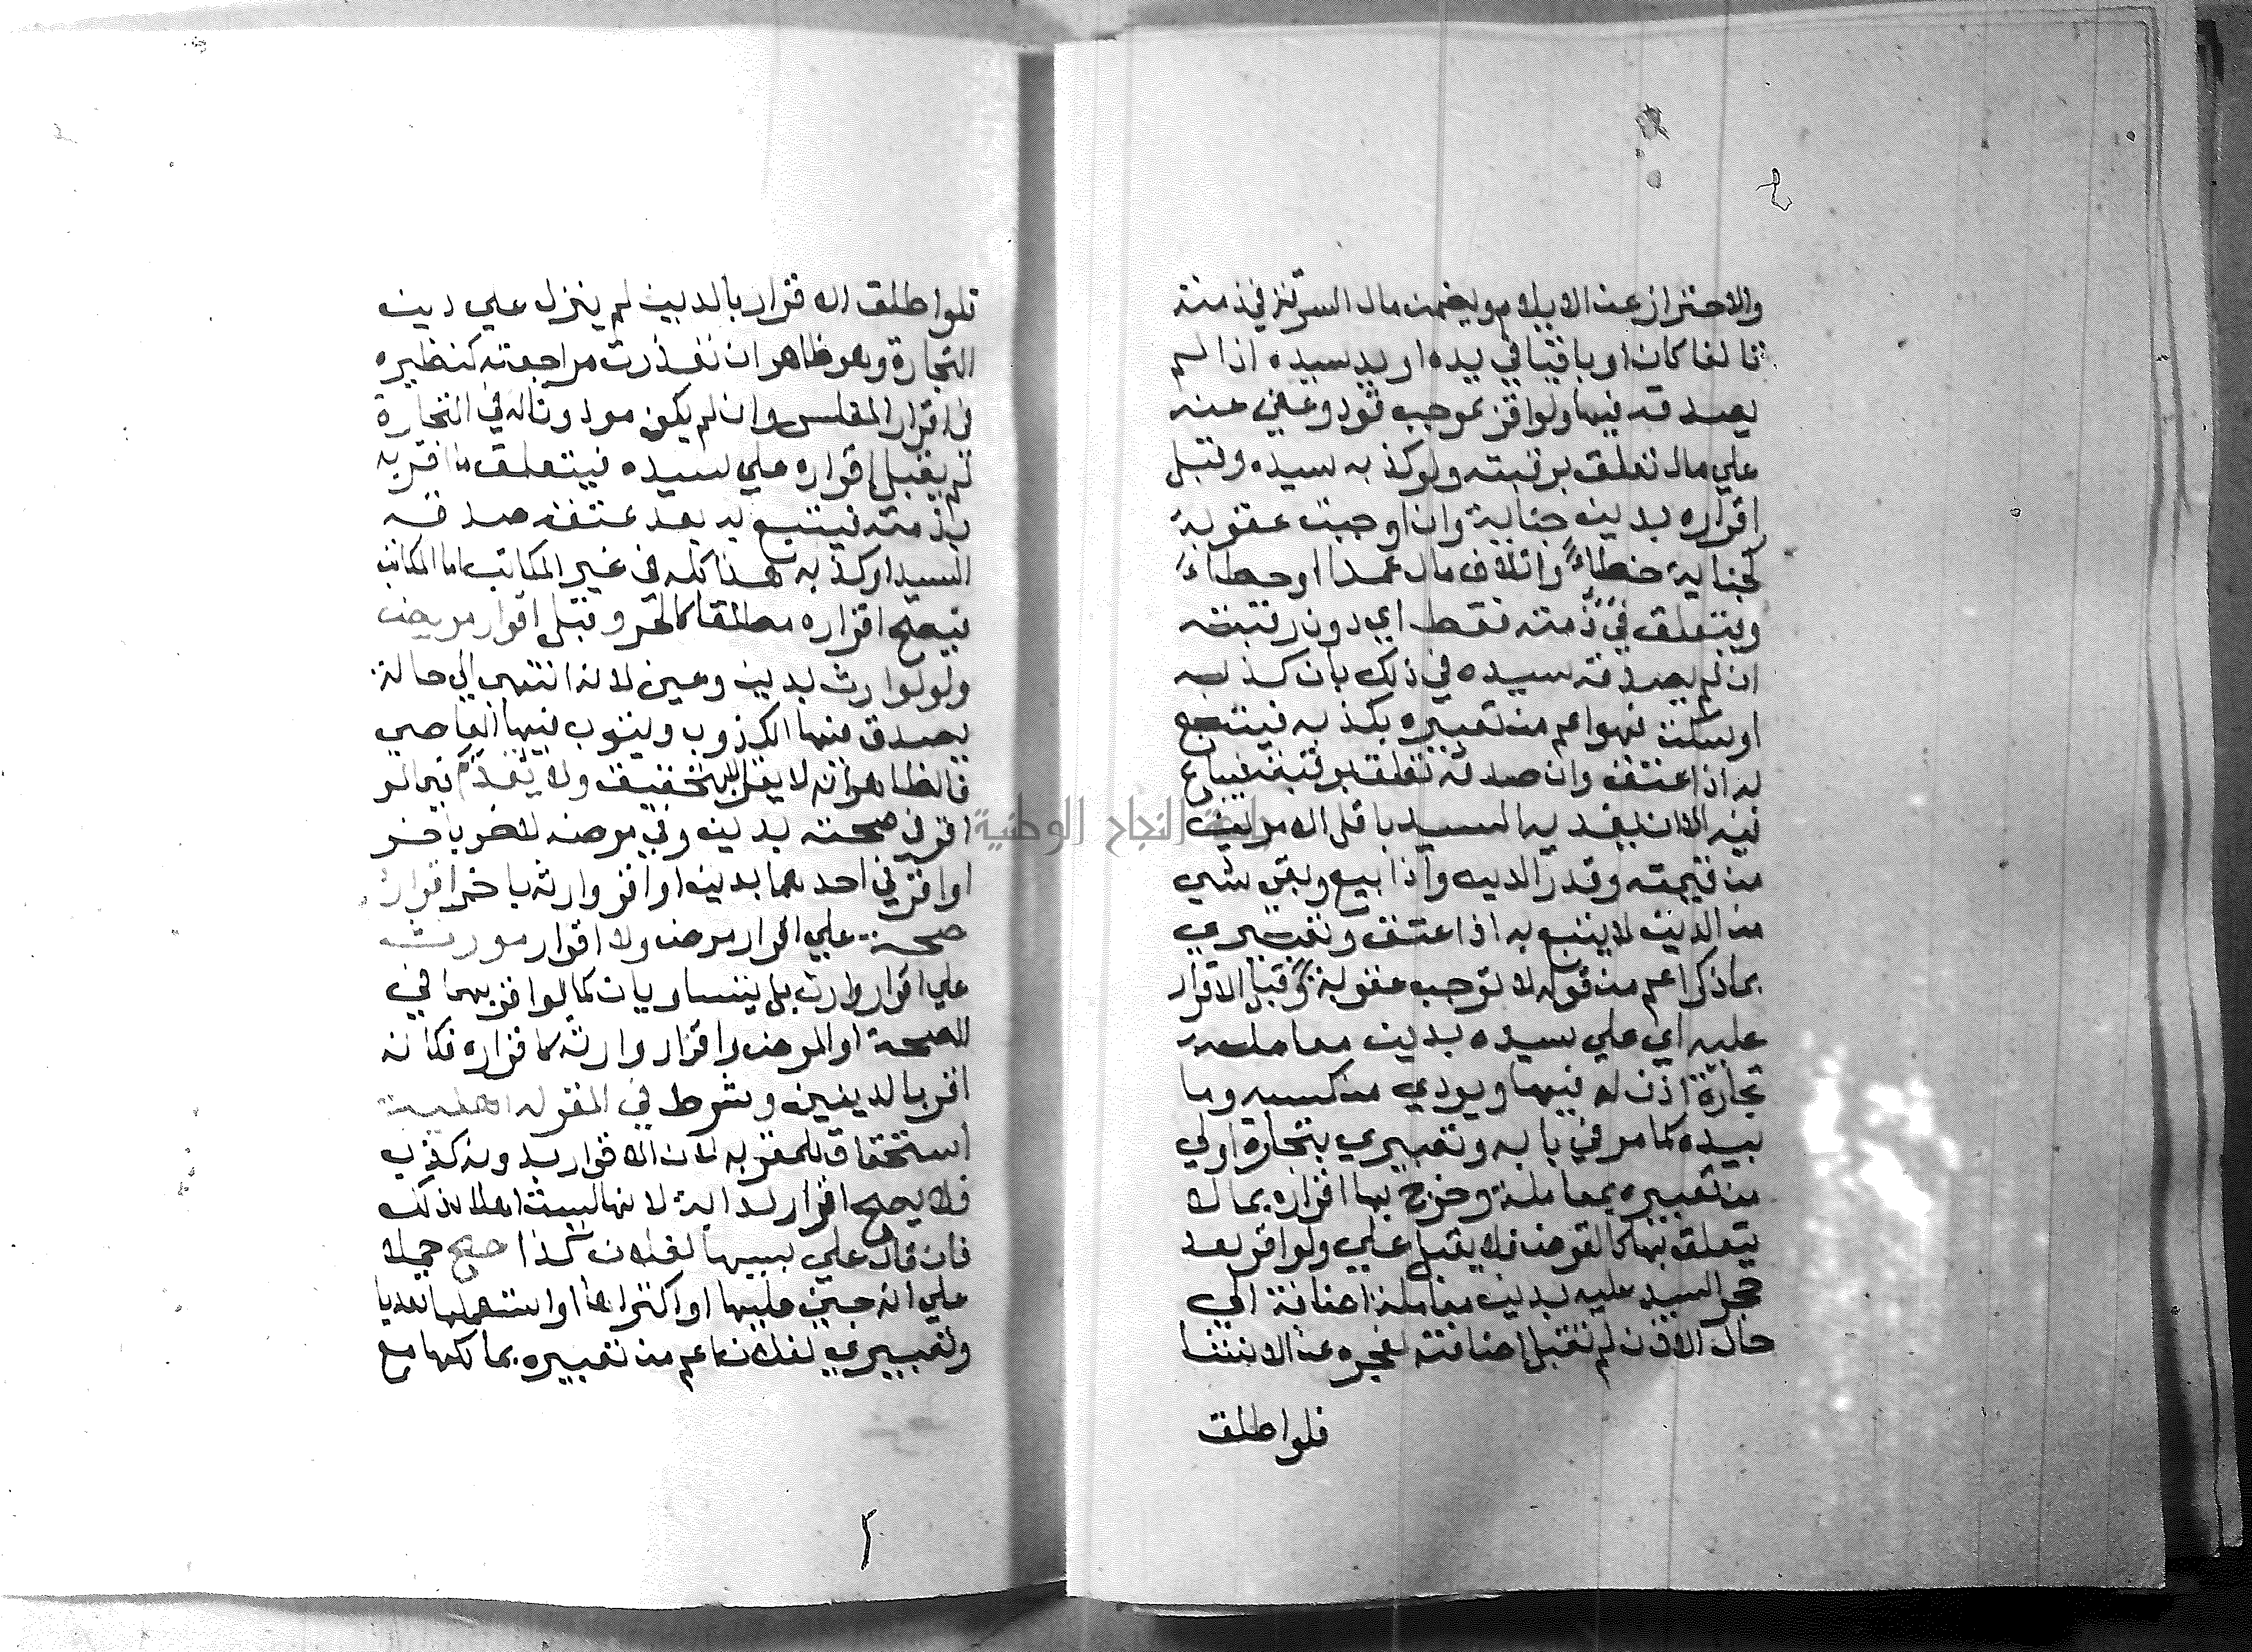 والاحتراز عن الايلام ويضمن مال السرقة في ذمته
تالفا كان او باقيا في يده او يد سيده اذا لم
يصدقه فيها ولو اقر بموجب قود وعفي عنه
علي مال تعلق برقبته ولو كذبه سيده وقبل
اقراره بدين جناية وان اوجبت عقوبة
كجناية خطاءً واتلاف مال عمدا او خطاءً
ويتعلق في ذمته فقط اي دون رقبته
ان لم يصدقه سيده في ذلك بان كذبه
او سكت فهو اعم من تعبيره بكذبه فيتبع
به اذا عتق وان صدقه تعلق برقبته فيباع
فيه الا ان يفديه السيد باقل الامرين
من قيمته وقدر الدين واذا بيع وبقي شي
من الدين لا يتبع به اذا عتق وتعبيري
بما ذكر اعم من قوله لا توجب عقوبة وقبل الاقرار
عليه اي علي سيده بدين معاملة
تجارة اذن له فيها ويودي من كسبه وما
بيده كما مر في بابه وتعبيري بتجارة اولي
من تعبيره بمعاملة وخرج بها اقراره بما لا
يتعلق بها كالقرض فلا يقبل علي ولو اقر بعد
حجر السيد عليه بدين معاملة اضافة الي
حال الاذن لم تقبل اضافته لعجزه عن الانشا
فلو اطلق
فلو اطلق الاقرار بالدين لم ينزل علي دين
التجارة وهو ظاهر ان تعذرت مراجعته كنظيره
في اقرار المفلس وان لم يكن موذونا له في التجارة
لم يقبل اقراره علي سيده فيتعلق ما اقر به
بذمته فيتبع به بعد عتقه صدقه
السيد او كذبه هذا كله في غير المكاتب اما المكاتب
فيصح اقراره مطلقا كالحر وقبل اقرار مريض
ولو لوارث بدين وعين لانه انتهي الي حالة
يصدق فيها الكذوب ويتوب فيها العاصي
فالظاهر انه لا يقر الا بتحقيق ولا يقدم فيما لو
اقر في صحته بدين وفي مرضه لاخر باخر
او اقر في احدهما بدين او اقر وارثه باخر اقرار
صحة علي اقرار مرض ولا اقرار مورث
علي اقرار وارث بل يتساويان كما لو اقر بهما في
الصحة او المرض واقرار وارثه كاقراره فكانه
اقر بالدينين وشرط في المقر له اهلية
استحقاق للمقر به لان الاقرار بدونه كذب
فلا يصح اقرار لدابة لانها ليست اهلا لذلك
فان قال علي بسببها لفلان كذا صح حملا
علي انه جني عليها او اكتراها او استعملها تعديا
وتعبيري لفلان اعم من تعبيره بمالكها مع